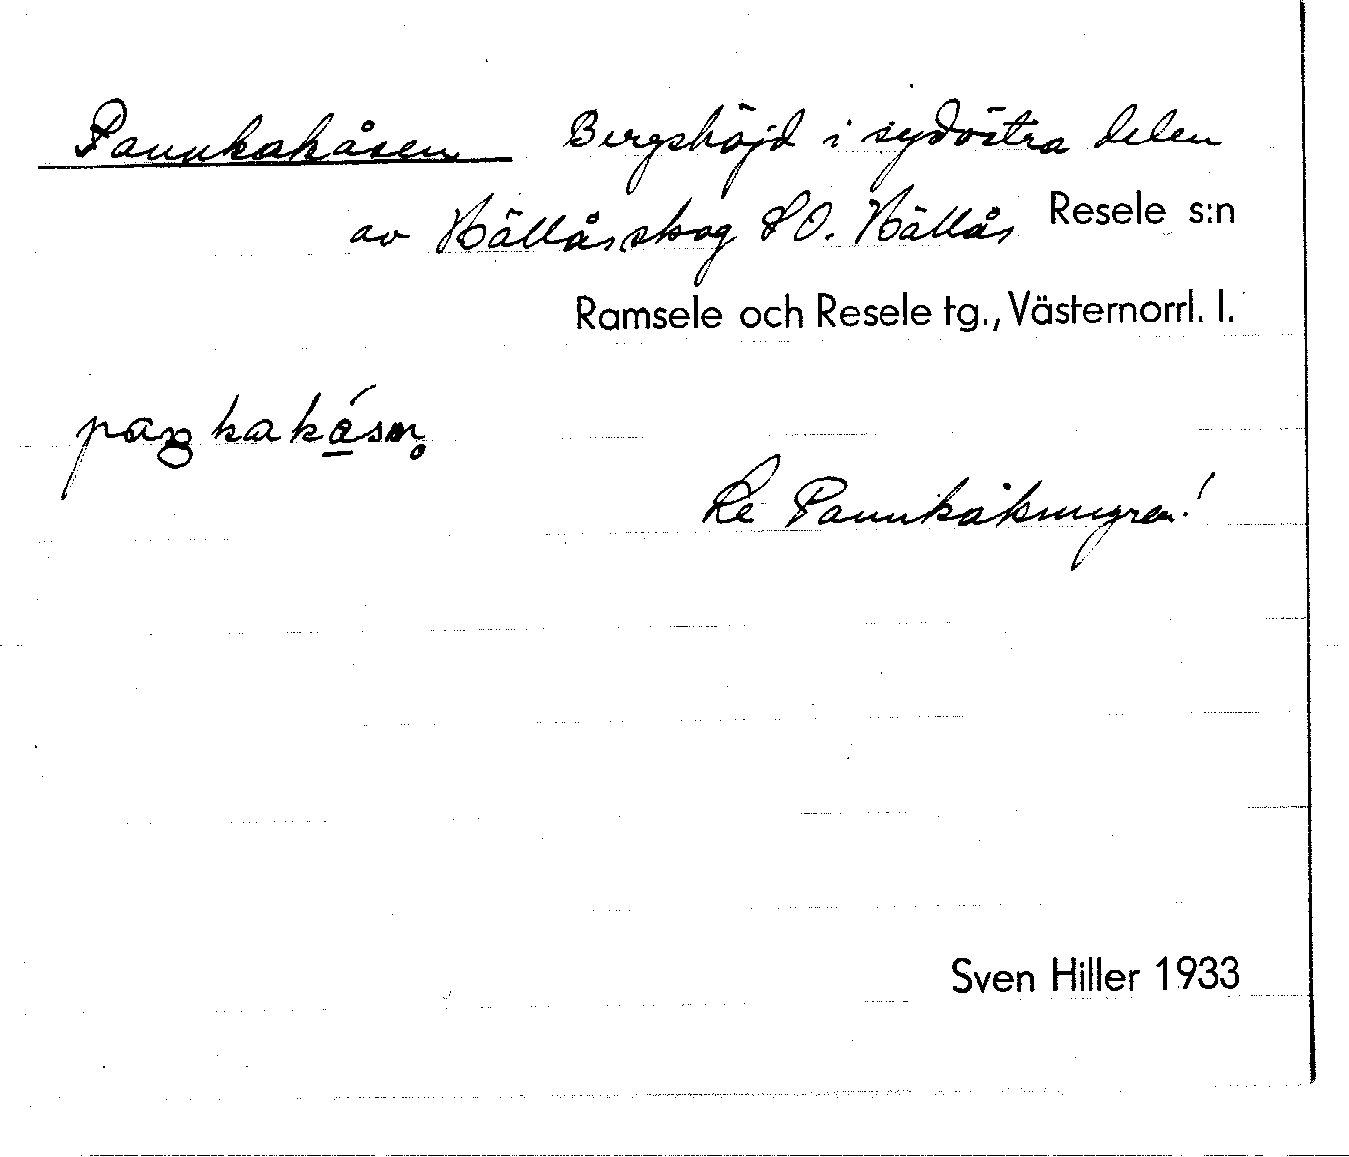 Pannkakåsen Bergshöjd i sydöstra delen
av Hällåsskog SO. Hällås Resele s:n
Ramsele och Resele tg., Västernorrl. l.
paŋkakåsn̥
Se Pannkåkmyren!
Sven Hiller 1933